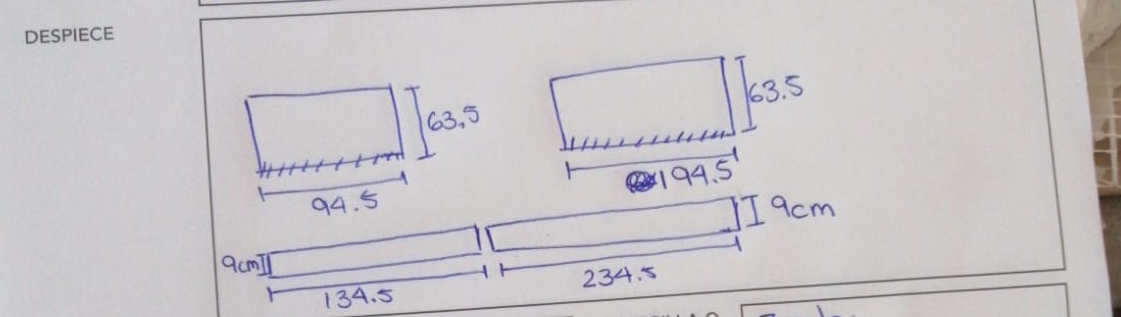 DESPIECE
63,5
63.5
94.5
194.5
9cm
9cm
134.5
234.5